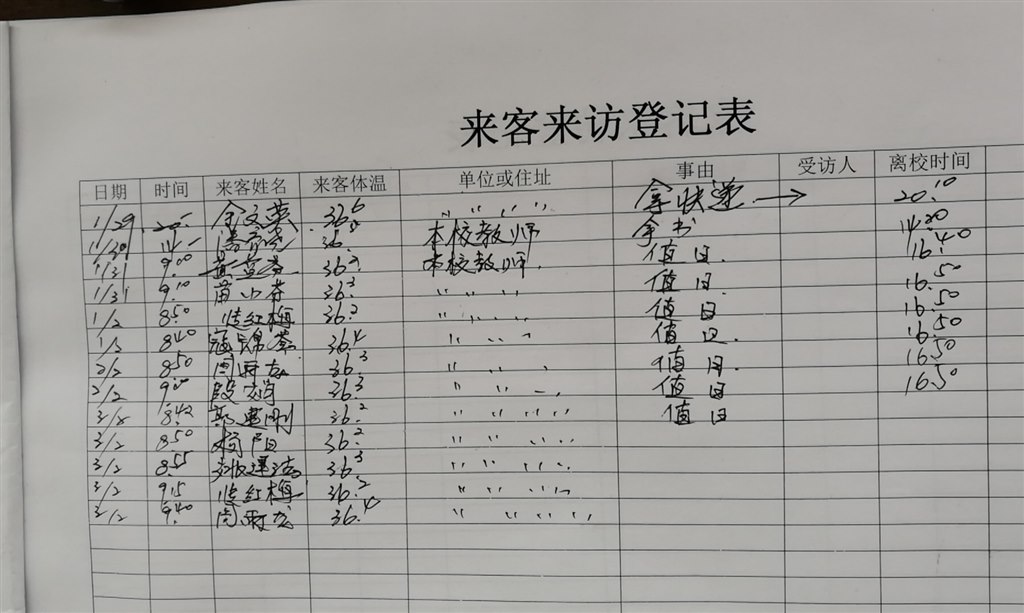 来客来访登记表
日期 时间 来客姓名 来客体温 单位或住址 事由 受访人 离校时间
1/29 20: 余文英 36.6 〃 〃 〃 〃 拿快递 → 20:10
1/30 14: 36. 本校教师 拿书 14:20
1/31 9:00 36.2 本校教师. 值日. 16:40
1/31 9:10 苗小芬 36.3 〃 〃 〃 〃 值日 16:50
1/2 8:50 张红梅 36.2 〃 〃 〃 〃 值日 16:50
1/2 8:40 寇锦 36.4 〃 〃 〃 值日. 16:50
2/2 8:50 周 36.3 〃 〃 〃 值日. 16:50
2/2 9:00 段 36.3 〃 〃 〃 值日 16:50
8:42 郭建刚 36.2 〃 〃 〃 〃 〃 值日
3/2 8:50 杨阳 36.2 〃 〃 〃 〃 〃
3/2 8:55 36.3 〃 〃 〃 〃
3/2 9:15 张红梅 36.2 〃 〃 〃 〃
3/2 9:40 周 36.4 〃 〃 〃 〃 〃